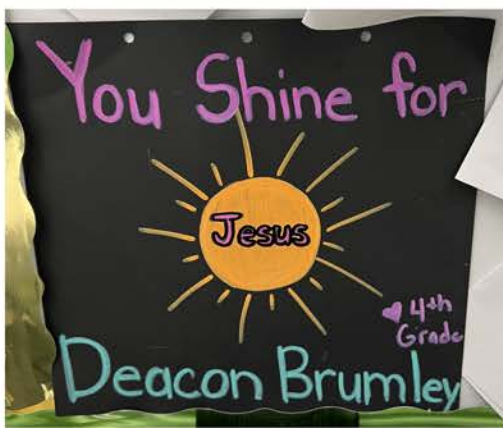 You Shine for
Jesus
♥ 4th
Grade
Deacon Brumley